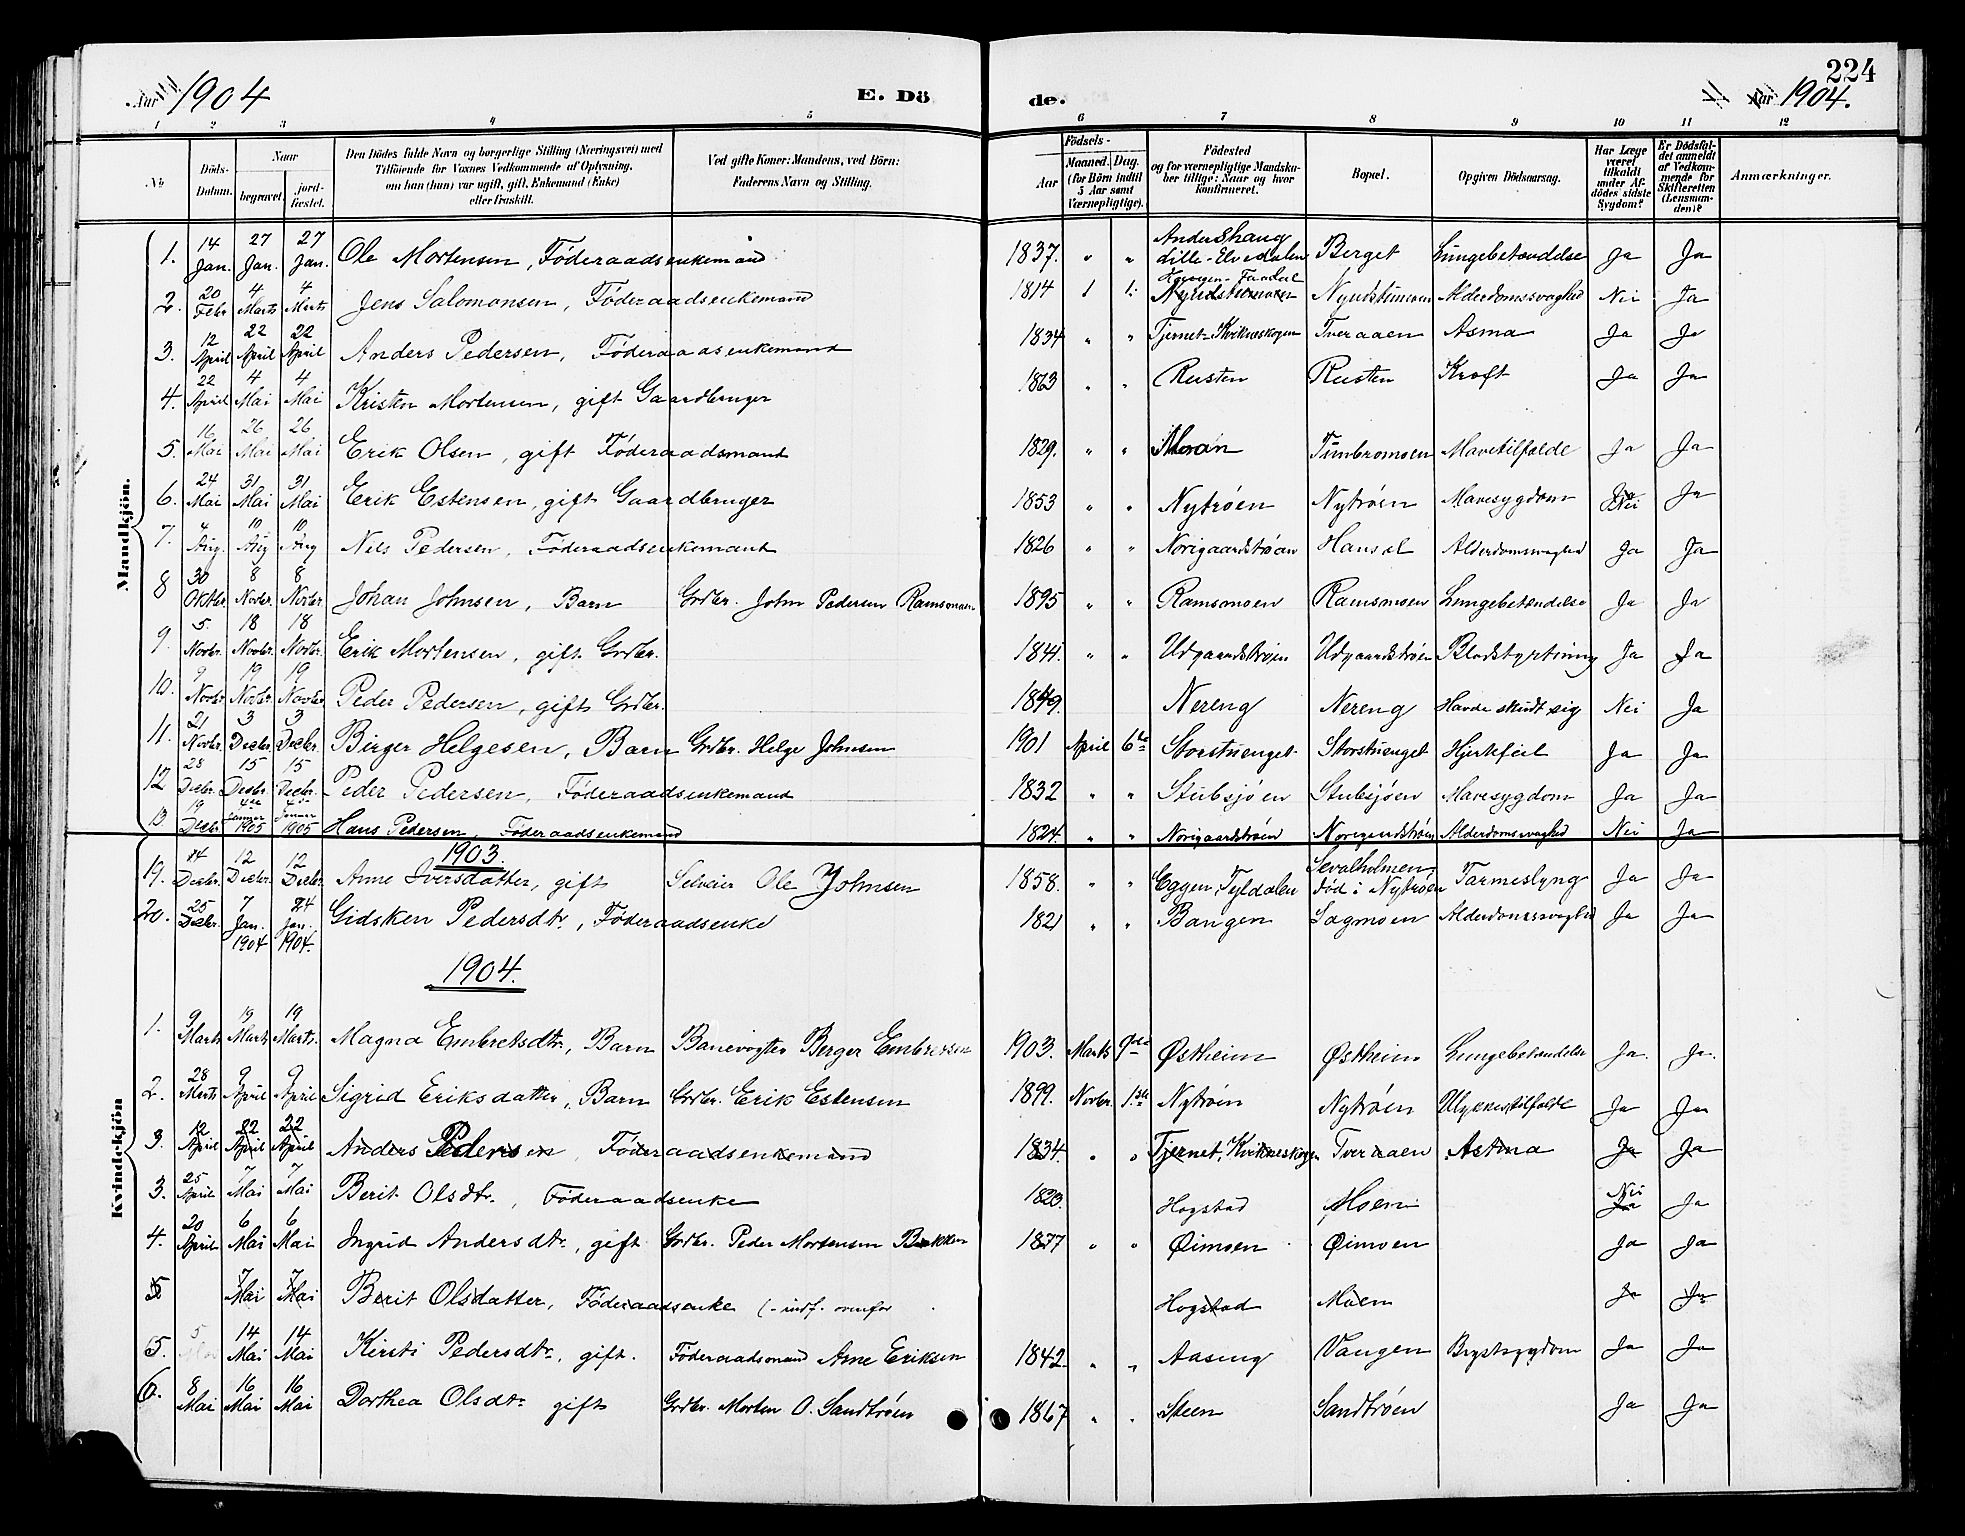 Aar 1904
E. Dö
de.
224
Aar 1904.
1 2 3 4 5 6 7 8 9 10 11 12
No
Döds-Datum.
Naar
begravet.
jord-fæstet.
Den Dödes fulde Navn og borgerlige Stilling (Næringsvei) med
Tilföiende for Voxnes Vedkommende af Oplysning,
om han (hun) var ugift, gift, Enkemand (Enke)
eller fraskilt.
Ved gifte Koner: Mandens, ved Börn:
Faderens Navn og Stilling.
Födsels-
Aar
Maaned. Dag.
(for Börn indtil
5 Aar samt
Værnepligtige).
Födested
og for værnepligtige Mandska-
ber tillige: Naar og hvor
konfirmeret.
Bopæl.
Opgiven Dödsaarsag.
Har Læge
været
tilkaldt
under Af-
dödes sidste
Sygdom?
Er Dödsfal-
det anmeldt
af Vedkom-
mende for
Skifteretten
(Lensman-
den)?
Anmærkninger.
Mandkjön.
1. 14 Jan. 27 Jan. 27 Jan. Ole Mortensen, Føderaadsenkemand 1837. " " Andershaug Lille-Elvedalen Berget Lungebetændelse Ja Ja
2. 20 Febr 4 Marts 4 Marts Jens Salomonsen, Føderaadsenkemand 1814 1 1. Nyudstumoen Nyudstumoen Alderdomssvaghed Nei Ja
3. 12 April 22 April 22 April Anders Pedersen, Føderaadsenkemand 1834 " " Tjernet-Kvikneskogen Tveraaen Asma Ja Ja
4. 22 April 4 Mai 4 Mai Kristen Mortensen, gift Gaardbruger 1863 " " Rusten Rusten Kræft Ja Ja
5. 16 Mai 26 Mai 26 Mai Erik Olsen, gift Føderaadsmand 1829. " " Moan Timbromoen Mavetilfælde Ja Ja
6. 24 Mai 31 Mai 31 Mai Erik Estensen, gift Gaardbruger 1853 " " Nytrøen Nytrøen Mavesygdom Ja Nei Ja
7. 4 Aug. 10 Aug 10 Aug Nils Pedersen, Føderaadsenkemand 1826 " " Norigaardstrøen Alderdomssvaghed Ja Ja
8 30 Oktbr. 8 Novbr. 8 Novbr. Johan Johnsen, Barn Grdbr. John Pedersen Ramsmoen 1895 " " Ramsmoen Ramsmoen Lungebetændelse Ja Ja
9. 5. Novbr. 18 Novbr. 18 Novbr. Erik Mortensen, gift Grdbr. 1841. " " Udgaardstrøen Udgaardstrøen Blodstyrtning Ja Ja
10. 9 Novbr. 19 Novbr. 19 Novbr. Peder Pedersen, gift Grdbr. 1849. Nereng Nereng Havde skudt sig Nei Ja
11. 21 Novbr. 3 Decbr. 3 Decbr. Birger Helgesen, Barn Grdbr. Helge Johnsen 1901 April 6te Storstuenget Storstuenget Hjertefeil Ja Ja
12 28 Decbr. 15 Decbr. 15 Decbr. Peder Pedersen, Føderaadsenkemand 1832 " " Stubsjøen Stubsjøen Mavesygdom Ja Ja
13 19 Decbr. 4de Januar 1905 4de Januar 1905 Hans Pedersen, Føderaadsenkemand 1824. " " Norigaardstrøen Norigaardstrøen Alderdomssvaghed Nei Ja
Kvindekjön
1903.
19. Decbr. 12 Decbr. 12 Decbr. Anne Iversdatter, gift Selveier Ole Johnsen 1858. " " Eggen, Tyldalen Sevalholmen, død i Nytrøen Tarmeslyng Ja Ja
20. 25 Decbr. 7 Jan. 1904 24 Jan. 1904. Gidsken Pedersdtr., Føderaadsenke 1821 " " Bangen Sagmoen Alderdomssvaghed Ja Ja
1904.
1. 9 Marts 19 Marts 19 Marts. Magna Embretsdtr., Barn Banevogter Berger Embretsen 1903. Marts 9de Østheim Østheim Lungebetændelse Ja. Ja.
2. 28 Marts 9 April 9 April Sigrid Eriksdatter, Barn Grdbr. Erik Estensen 1899. Novbr. 1.ste Nytrøen Nytrøen Ulykkestilfælde Ja Ja
3. 12 April 22 April 22 April Anders Pedersen, Føderaadsenkemand 1834. " " Tjernet, Kvikneskogen Tveraaen Astma Ja Ja
3. 25 April 7 Mai 7 Mai Berit Olsdtr., Føderaadsenke 1823. Hogstad Moen Nei Ja Ja
4. 20 April 6 Mai 6 Mai Ingrid Andersdtr., gift Grdbr. Peder Mortensen Bakken 1877 " " Øimoen Øimoen Ja Ja
5 7 Mai 7 Mai Berit Olsdatter, Føderaadsenke (-indf. ovenfor Hogstad Moen Ja Ja
5. 5 Mai 14 Mai 14 Mai Kirsti Pedersdtr., gift. Føderaadsmand Arne Eriksen 1842 " " Aaseng Vangen Brystsygdom Ja Ja
6. 8 Mai 16 Mai 16 Mai Dorthea Olsdtr. gift Grdbr. Morten O. Sandtrøen 1867 " " Steen Sandtrøen Ja Ja